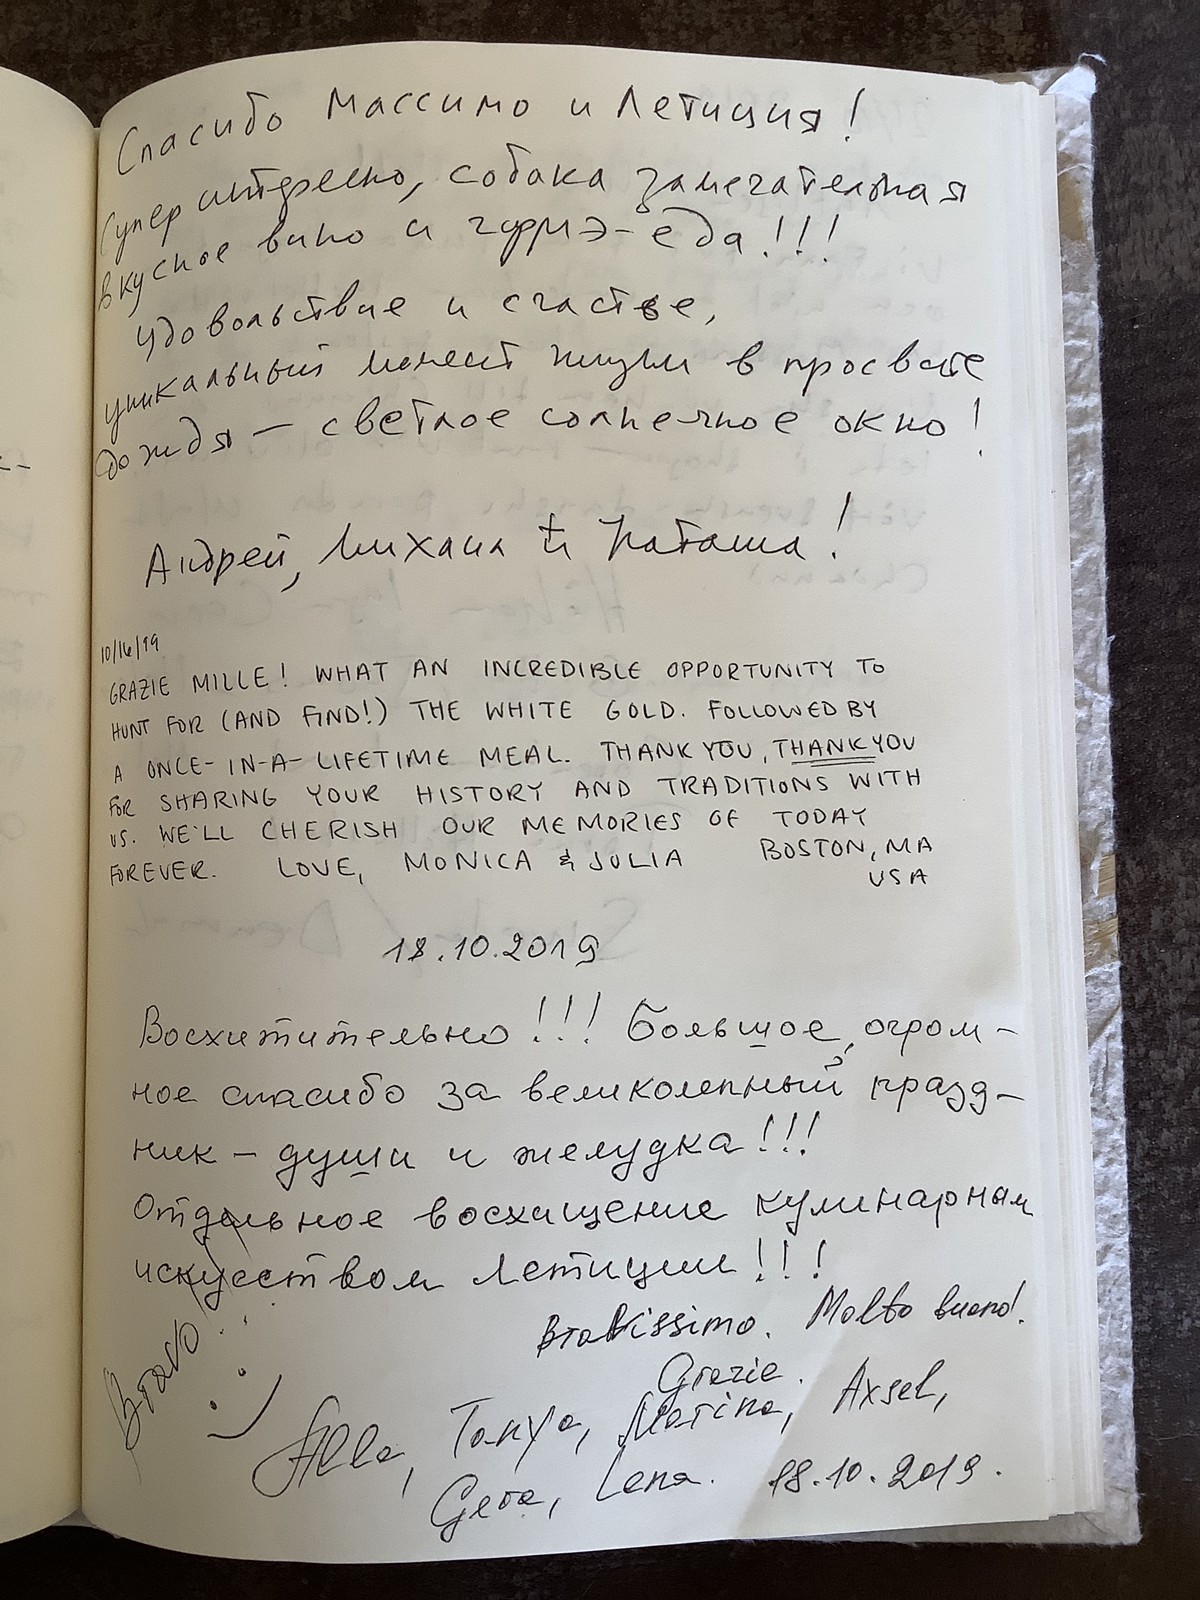 Спасибо Массимо и Летиция!
Супер интересно, собака замечательная
вкусное вино и гурмэ-еда!!!
удовольствие и счастье,
уникальный момент жизни в просвете
дождя — светлое солнечное окно!
Андрей, Михаил и Наташа!
10/16/19
GRAZIE MILLE! WHAT AN INCREDIBLE OPPORTUNITY TO
HUNT FOR (AND FIND!) THE WHITE GOLD. FOLLOWED BY
A ONCE-IN-A-LIFETIME MEAL. THANK YOU, THANK YOU
FOR SHARING YOUR HISTORY AND TRADITIONS WITH
US. WE'LL CHERISH OUR MEMORIES OF TODAY
FOREVER. LOVE, MONICA & JULIA BOSTON, MA
USA
18.10.2019
Восхитительно!!! Большое, огром-
ное спасибо за великолепный празд-
ник - души и желудка!!!
Отдельное восхищение кулинарным
искусством Летиции!!!
Bravissimo. Molto bueno!
Grazie.
Bravo
Alla, Tanya, Marina, Axsel,
Gera, Lena. 18.10.2019.